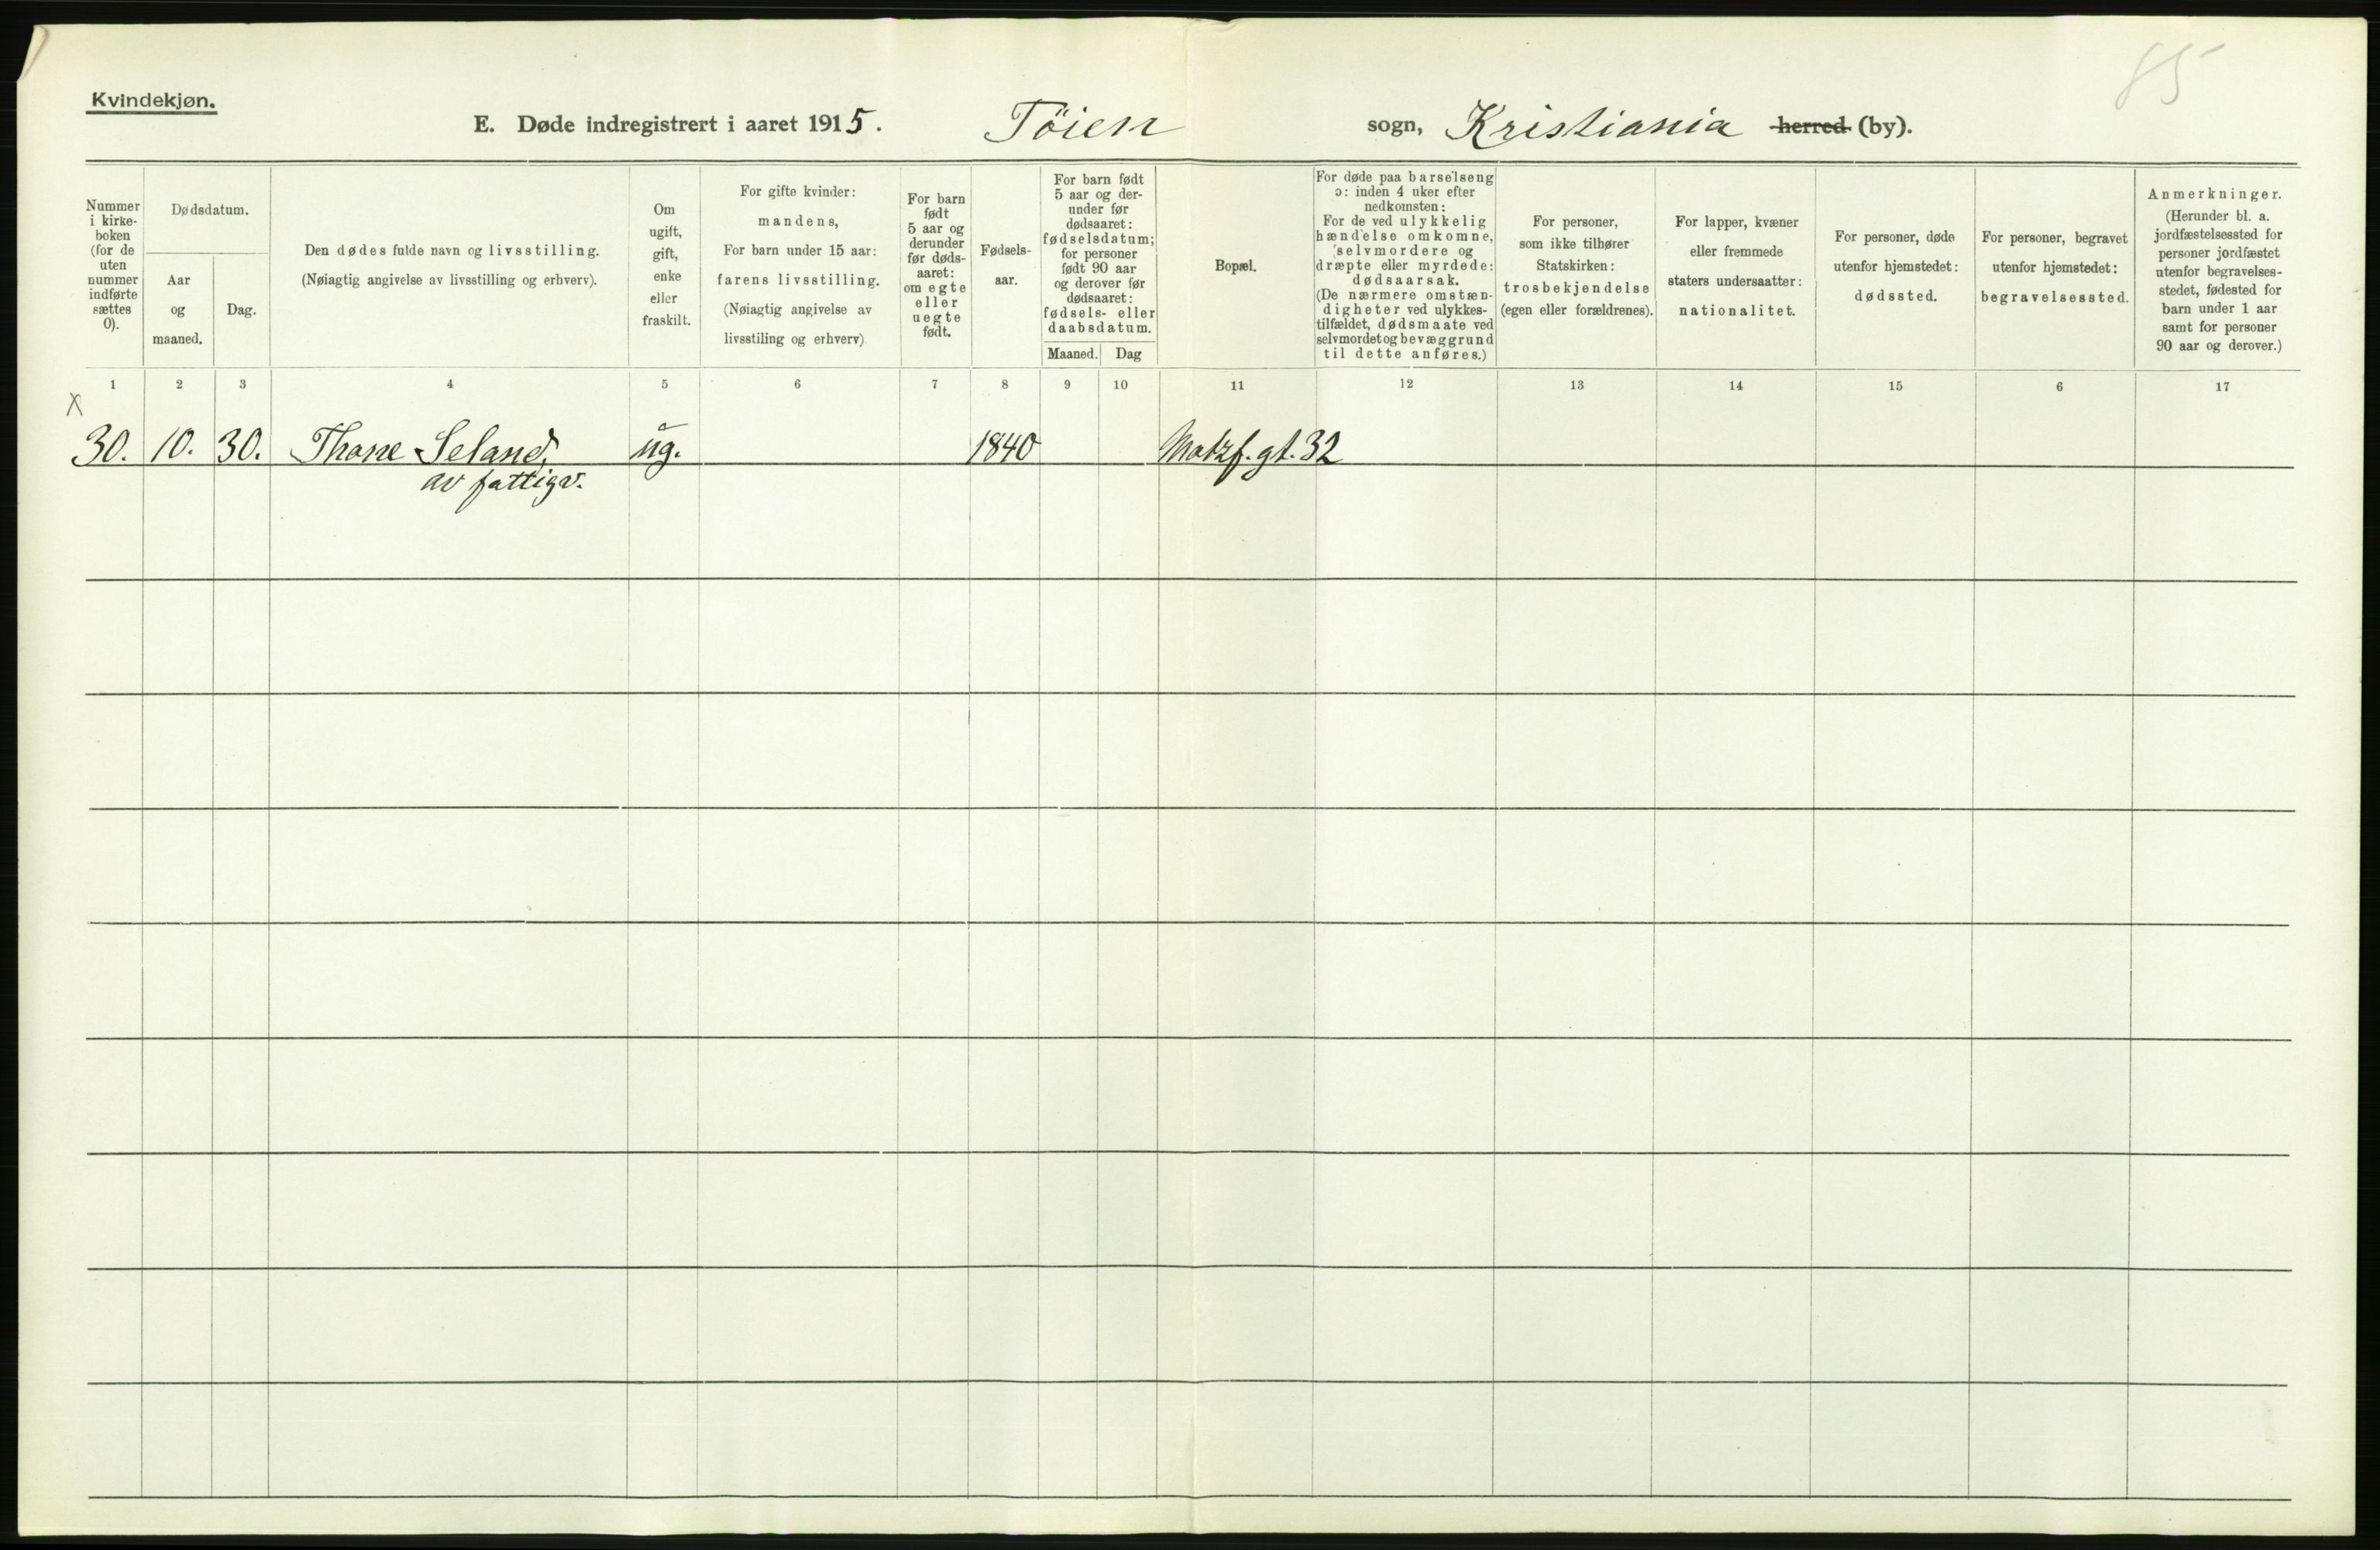 85
Kvindekjøn.
E. Døde indregistrert i aaret 1915. Töien sogn, Kristiania herred (by).
Nummer
i kirke-
boken
(for de
uten
nummer
indførte
sættes
0).
Dødsdatum.
Aar
og
maaned.
Dag.
Den dødes fulde navn og livsstilling.
(Nøiagtig angivelse av livsstilling og erhverv).
Om
ugift,
gift,
enke
eller
fraskilt.
For gifte kvinder:
mandens,
For barn under 15 aar:
farens livsstilling.
(Nøiagtig angivelse av
livsstiling og erhverv)
For barn
født
5 aar og
derunder
før døds-
aaret:
om egte
eller
uegte
født.
Fødsels-
aar.
For barn født
5 aar og der-
under før
dødsaaret:
fødselsdatum;
for personer
født 90 aar
og derover før
dødsaaret:
fødsels- eller
daabsdatum.
Maaned. Dag
Bopæl.
For døde paa barselseng
ɔ: inden 4 uker efter
nedkomsten:
For de ved ulykkelig
hændelse omkomne,
selvmordere og
dræpte eller myrdede:
dødsaarsak.
(De nærmere omstæn-
digheter ved ulykkes-
tilfældet, dødsmaate ved
selvmordet og bevæggrund
til dette anføres.)
For personer,
som ikke tilhører
Statskirken:
trosbekjendelse
(egen eller forældrenes).
For lapper, kvæner
eller fremmede
staters undersaatter:
nationalitet.
For personer, døde
utenfor hjemstedet:
dødssted.
For personer, begravet
utenfor hjemstedet:
begravelsessted.
Anmerkninger.
(Herunder bl. a.
jordfæstelsessted for
personer jordfæstet
utenfor begravelses-
stedet, fødested for
barn under 1 aar
samt for personer
90 aar og derover.)
1 2 3 4 5 6 7 8 9 10 11 12 13 14 15 6 17
X
30. 10. 30. Thone Seland, ug. 1840 Motzf. gt. 32
av fattigv.